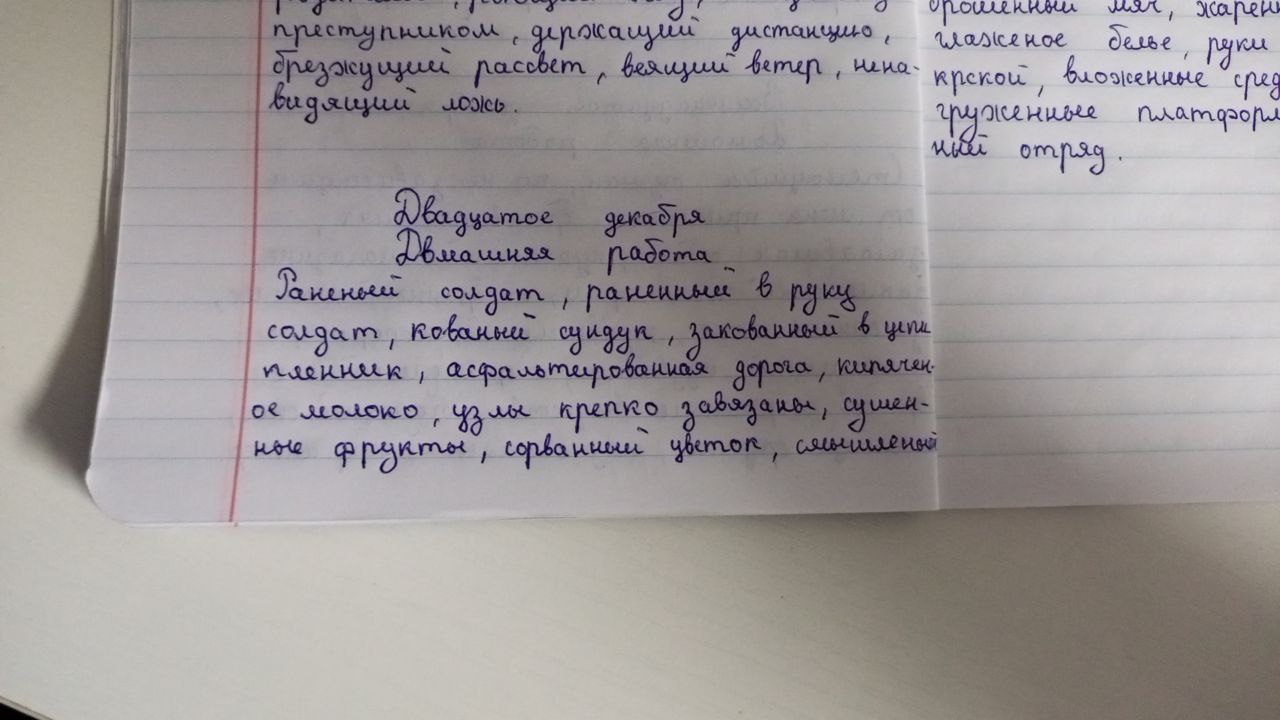 преступником, держащий дистанцию,
брезжущий рассвет, веящий ветер, нена-
видящий ложь.
Двадцатое декабря
Двмашняя работа
Раненый солдат, раненный в руку
солдат, кованый сундук, закованный в цепи
пленник, асфальтированная дорога, кипячен-
ое молоко, узлы крепко завязаны, сушен-
ные фрукты, сорванный цветок, смышленый
брошенный мяч, жарен
глаженое белье, руки
крской, вложенные сред
груженные платформ
ный отряд.